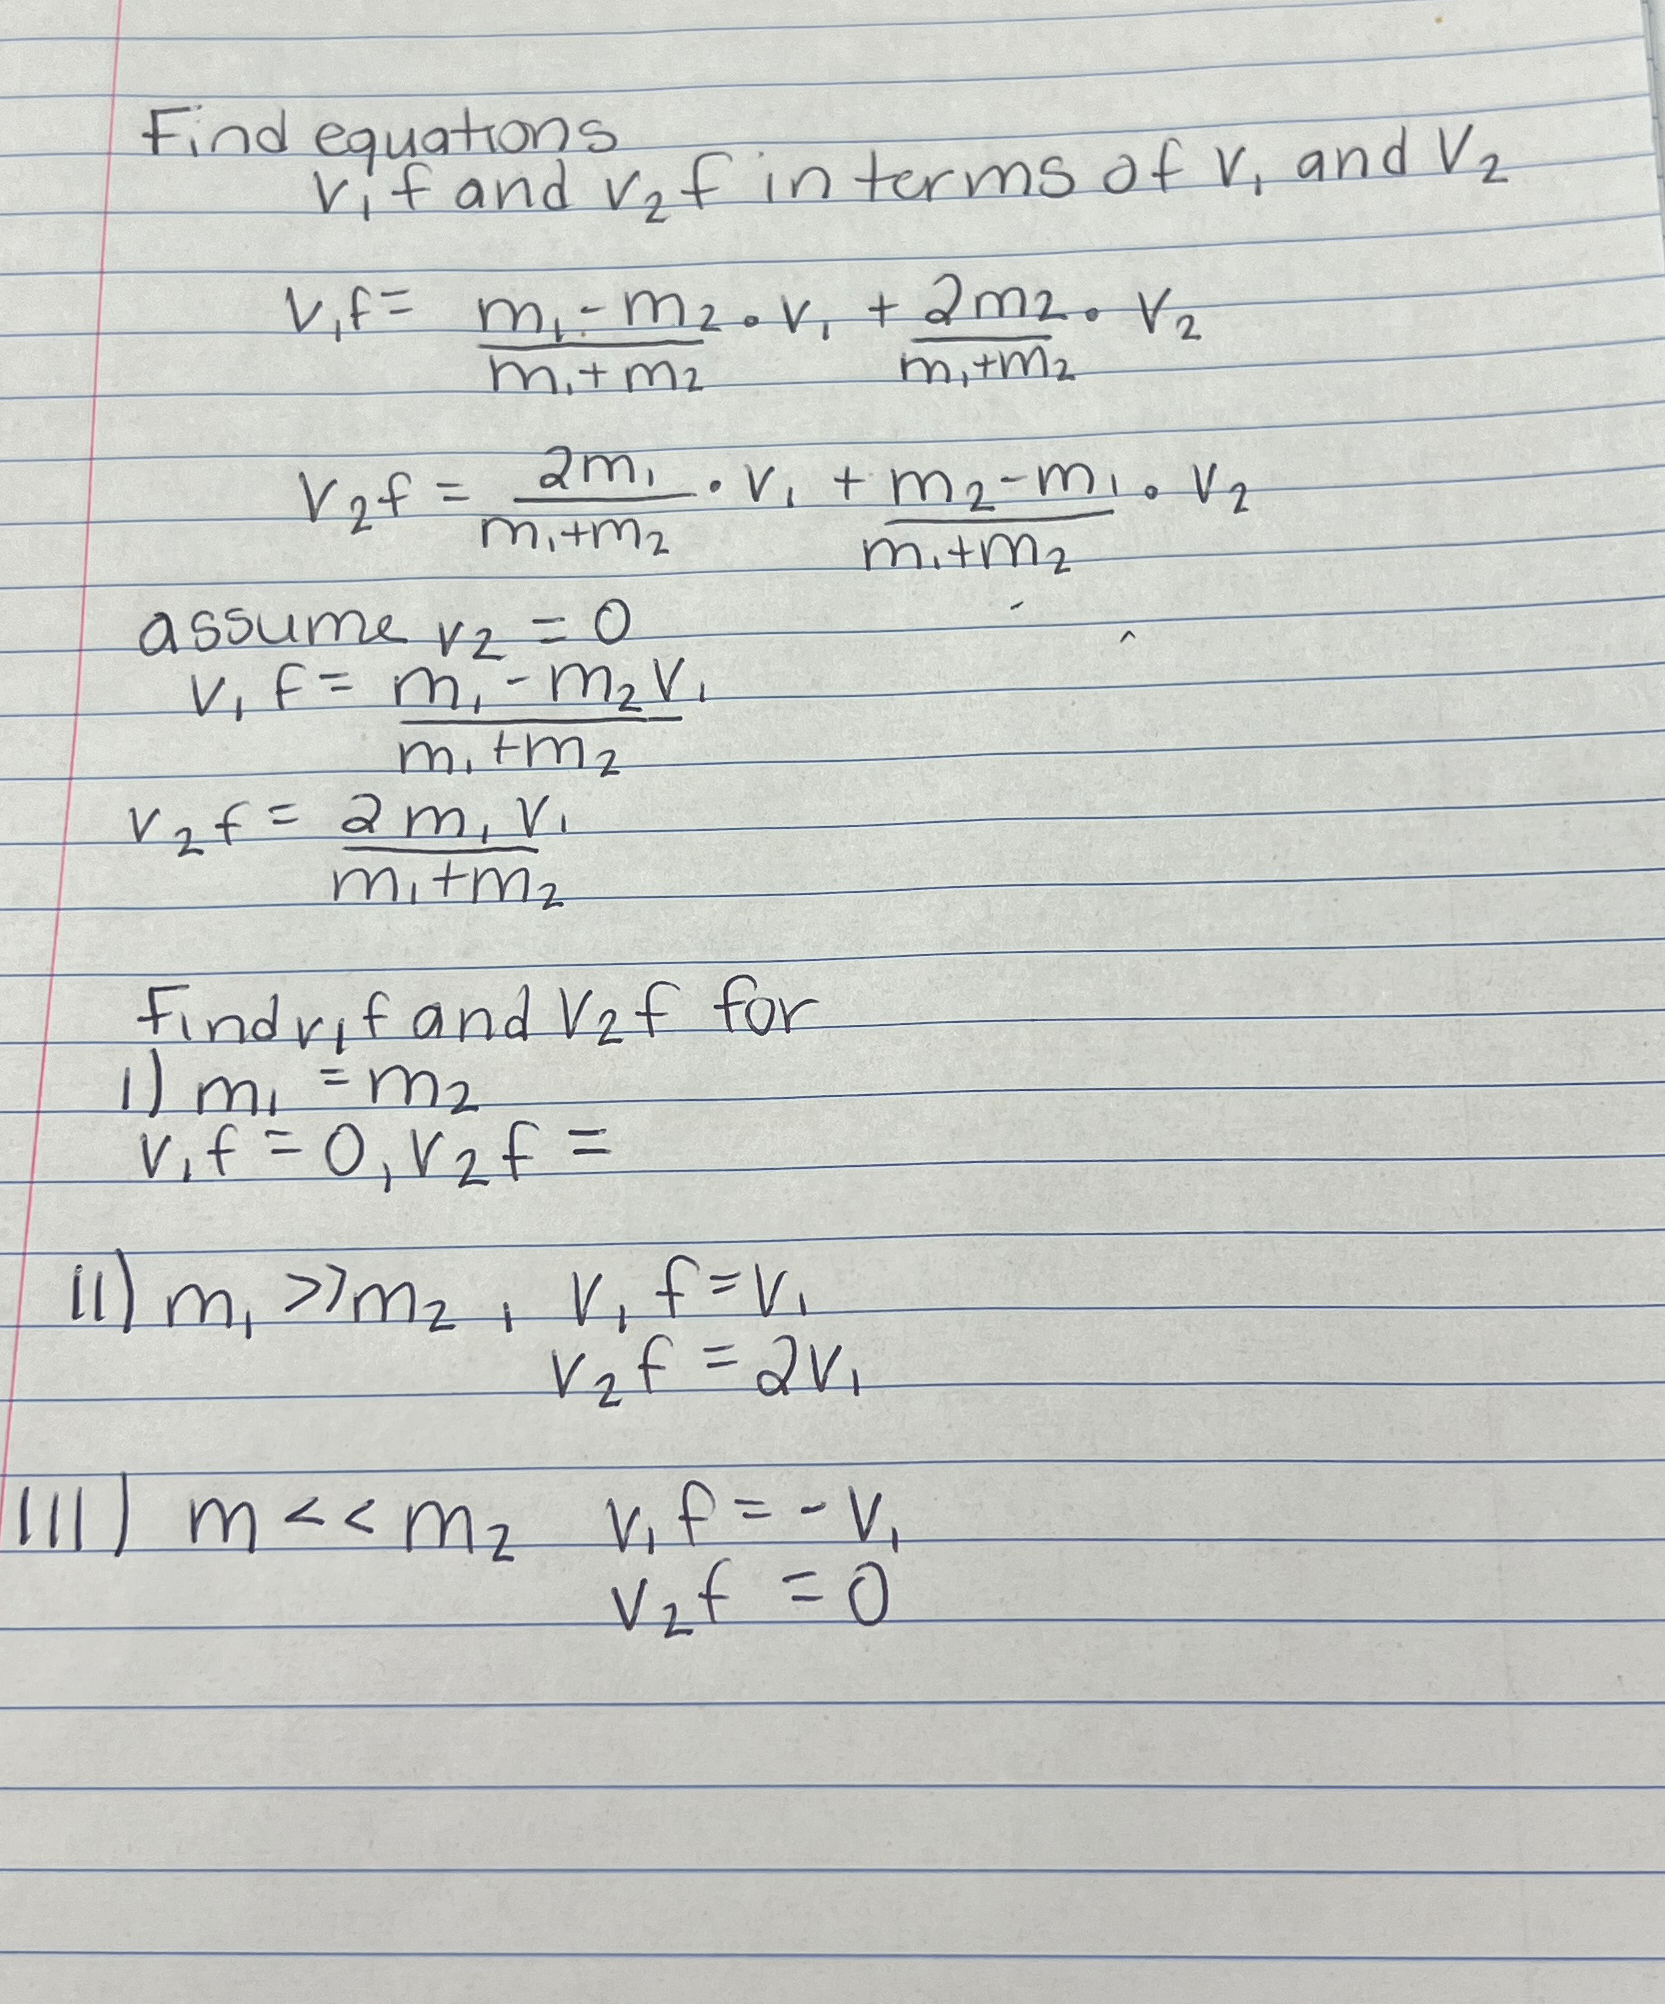 Find equations
v₁f and v₂f in terms of v₁ and v₂
v₁f = m₁ - m₂ • v₁ + 2m₂ • v₂
m₁ + m₂ m₁+m₂
v₂f = 2m₁ • v₁ + m₂ - m₁ • v₂
m₁+m₂ m₁+m₂
assume v₂ = 0
v₁f = m₁ - m₂v₁
m₁ + m₂
v₂f = 2m₁v₁
m₁+m₂
Find v₁f and v₂f for
I) m₁ = m₂
v₁f = 0, v₂f =
II) m₁ >> m₂, v₁f = v₁
v₂f = 2v₁
III) m << m₂ v₁f = - v₁
v₂f = 0